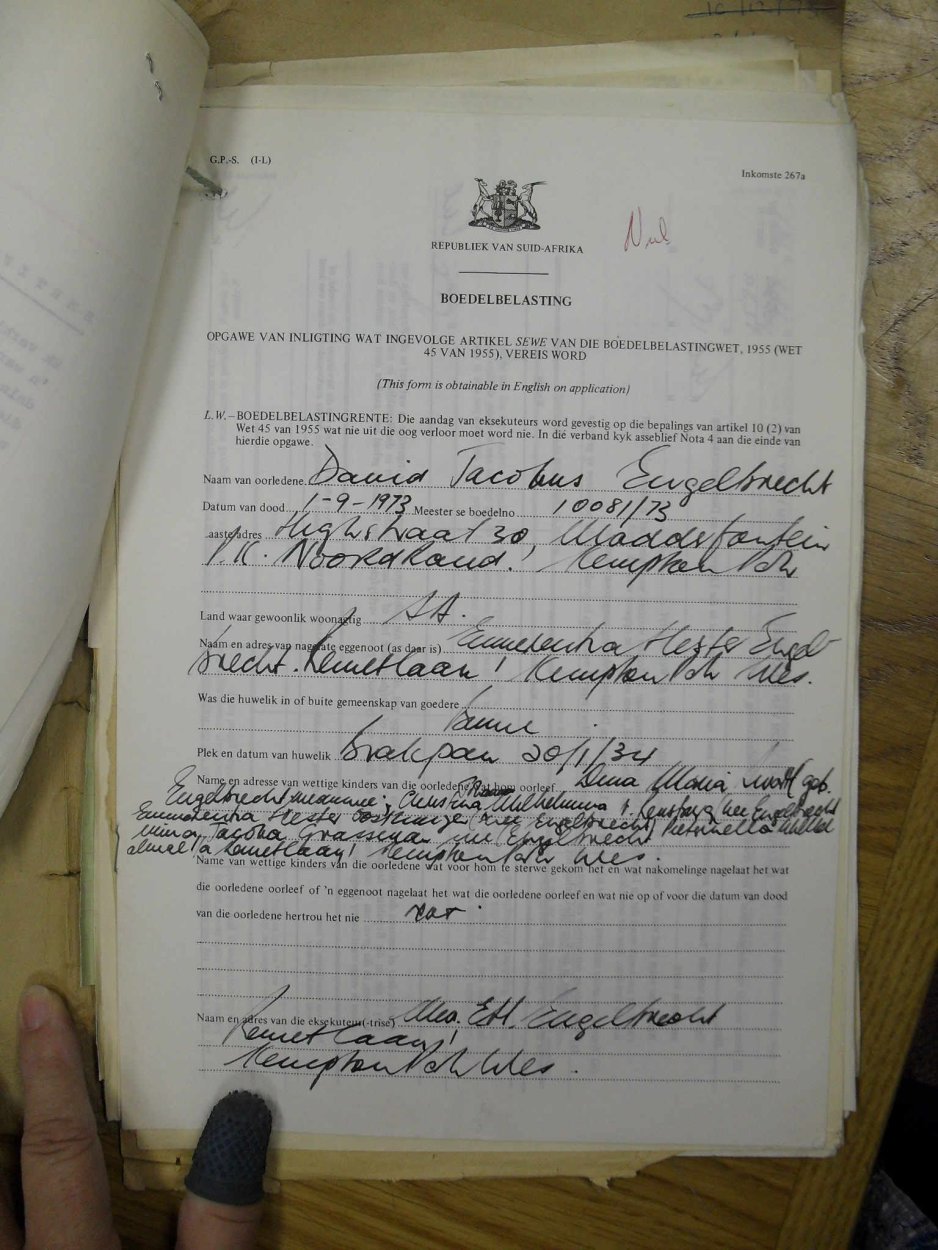 G.P.-S. (I-L)
Inkomste 267a
Nul
REPUBLIEK VAN SUID-AFRIKA
BOEDELBELASTING
OPGAWE VAN INLIGTING WAT INGEVOLGE ARTIKEL SEWE VAN DIE BOEDELBELASTINGWET, 1955 (WET
45 VAN 1955), VEREIS WORD
(This form is obtainable in English on application)
L.W.–BOEDELBELASTINGRENTE: Die aandag van eksekuteurs word gevestig op die bepalings van artikel 10 (2) van
Wet 45 van 1955 wat nie uit die oog verloor moet word nie. In die verband kyk asseblief Nota 4 aan die einde van
hierdie opgawe.
Naam van oorledene David Jacobus Engelbrecht
Datum van dood 1-9-1973 Meester se boedelno 10081/73
aaste adres Highstraat 30, Modderfontein
P.K. Noordrand. Kempton Park
Land waar gewoonlik woonagtig S.A.
Naam en adres van nagelate eggenoot (as daar is) Emmerentia Hester Engel-
brecht. Kemptonpark Wes.
Was die huwelik in of buite gemeenskap van goedere
binne
Plek en datum van huwelik Brakpan 20/1/34
Name en adresse van wettige kinders van die oorledene wat hom oorleef Dina Maria geb.
Engelbrecht Christina Wilhelmina nee Engelbrecht
Emmerentia Hester (nee Engelbrecht) Petronella
Jacoba nee Engelbrecht
Kempton Park Wes.
Name van wettige kinders van die oorledene wat voor hom te sterwe gekom het en wat nakomelinge nagelaat het wat
die oorledene oorleef of 'n eggenoot nagelaat het wat die oorledene oorleef en wat nie op of voor die datum van dood
van die oorledene hertrou het nie
Naam en adres van die eksekuteur(-trise) Mev. E.H. Engelbrecht
Kempton Park Wes.